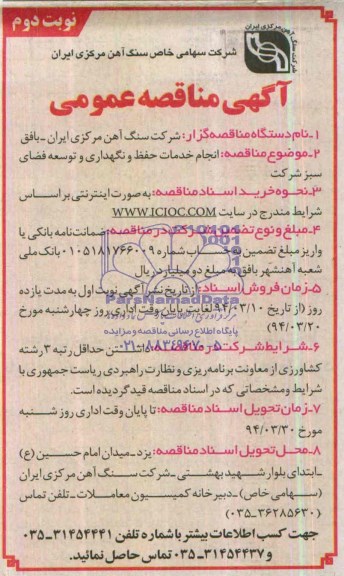 نوبت دوم
شرکت سنگ آهن مرکزی ایران
شرکت سهامی خاص سنگ آهن مرکزی ایران
آگهی مناقصه عمومی
۱-نام دستگاه مناقصه گزار: شرکت سنگ آهن مرکزی ایران -بافق
۲-موضوع مناقصه: انجام خدمات حفظ و نگهداری و توسعه فضای
سبز شرکت
۳-نحوه خرید اسناد مناقصه: به صورت اینترنتی بر اساس
شرایط مندرج در سایت WWW.ICIOC.COM
۴-مبلغ و نوع تضمین شرکت در مناقصه: ضمانت نامه بانکی یا
واریز مبلغ تضمین به حساب شماره ۰۱۰۵۱۸۱۷۶۶۰۰۹ بانک ملی
شعبه آهنشهر بافق به مبلغ دو میلیارد ریال
۵-زمان فروش اسناد: از تاریخ نشر آگهی نوبت اول به مدت یازده
روز (از تاریخ ۹۴/۰۳/۱۰ لغایت پایان وقت اداری روز چهارشنبه مورخ
۹۴/۰۳/۲۰)
۶-شرایط شرکت در مناقصه: داشتن حداقل رتبه ۳ رشته
کشاورزی از معاونت برنامه ریزی و نظارت راهبردی ریاست جمهوری با
شرایط و مشخصاتی که در اسناد مناقصه قید گردیده است.
۷-زمان تحویل اسناد مناقصه: تا پایان وقت اداری روز شنبه
مورخ ۹۴/۰۳/۳۰
۸-محل تحویل اسناد مناقصه: یزد-میدان امام حسین (ع)
-ابتدای بلوار شهید بهشتی -شرکت سنگ آهن مرکزی ایران
(سهامی خاص) -دبیرخانه کمیسیون معاملات-تلفن تماس
(۰۳۵-۳۶۲۸۵۶۳۰)
جهت کسب اطلاعات بیشتر با شماره تلفن ۳۱۴۵۴۴۴۱-۰۳۵
و ۳۱۴۵۴۴۳۷-۰۳۵ تماس حاصل نمائید.
ParsNamadData
پایگاه اطلاع رسانی مناقصه و مزایده
۰۲۱-۸۸۳۴۹۶۷۰-۵